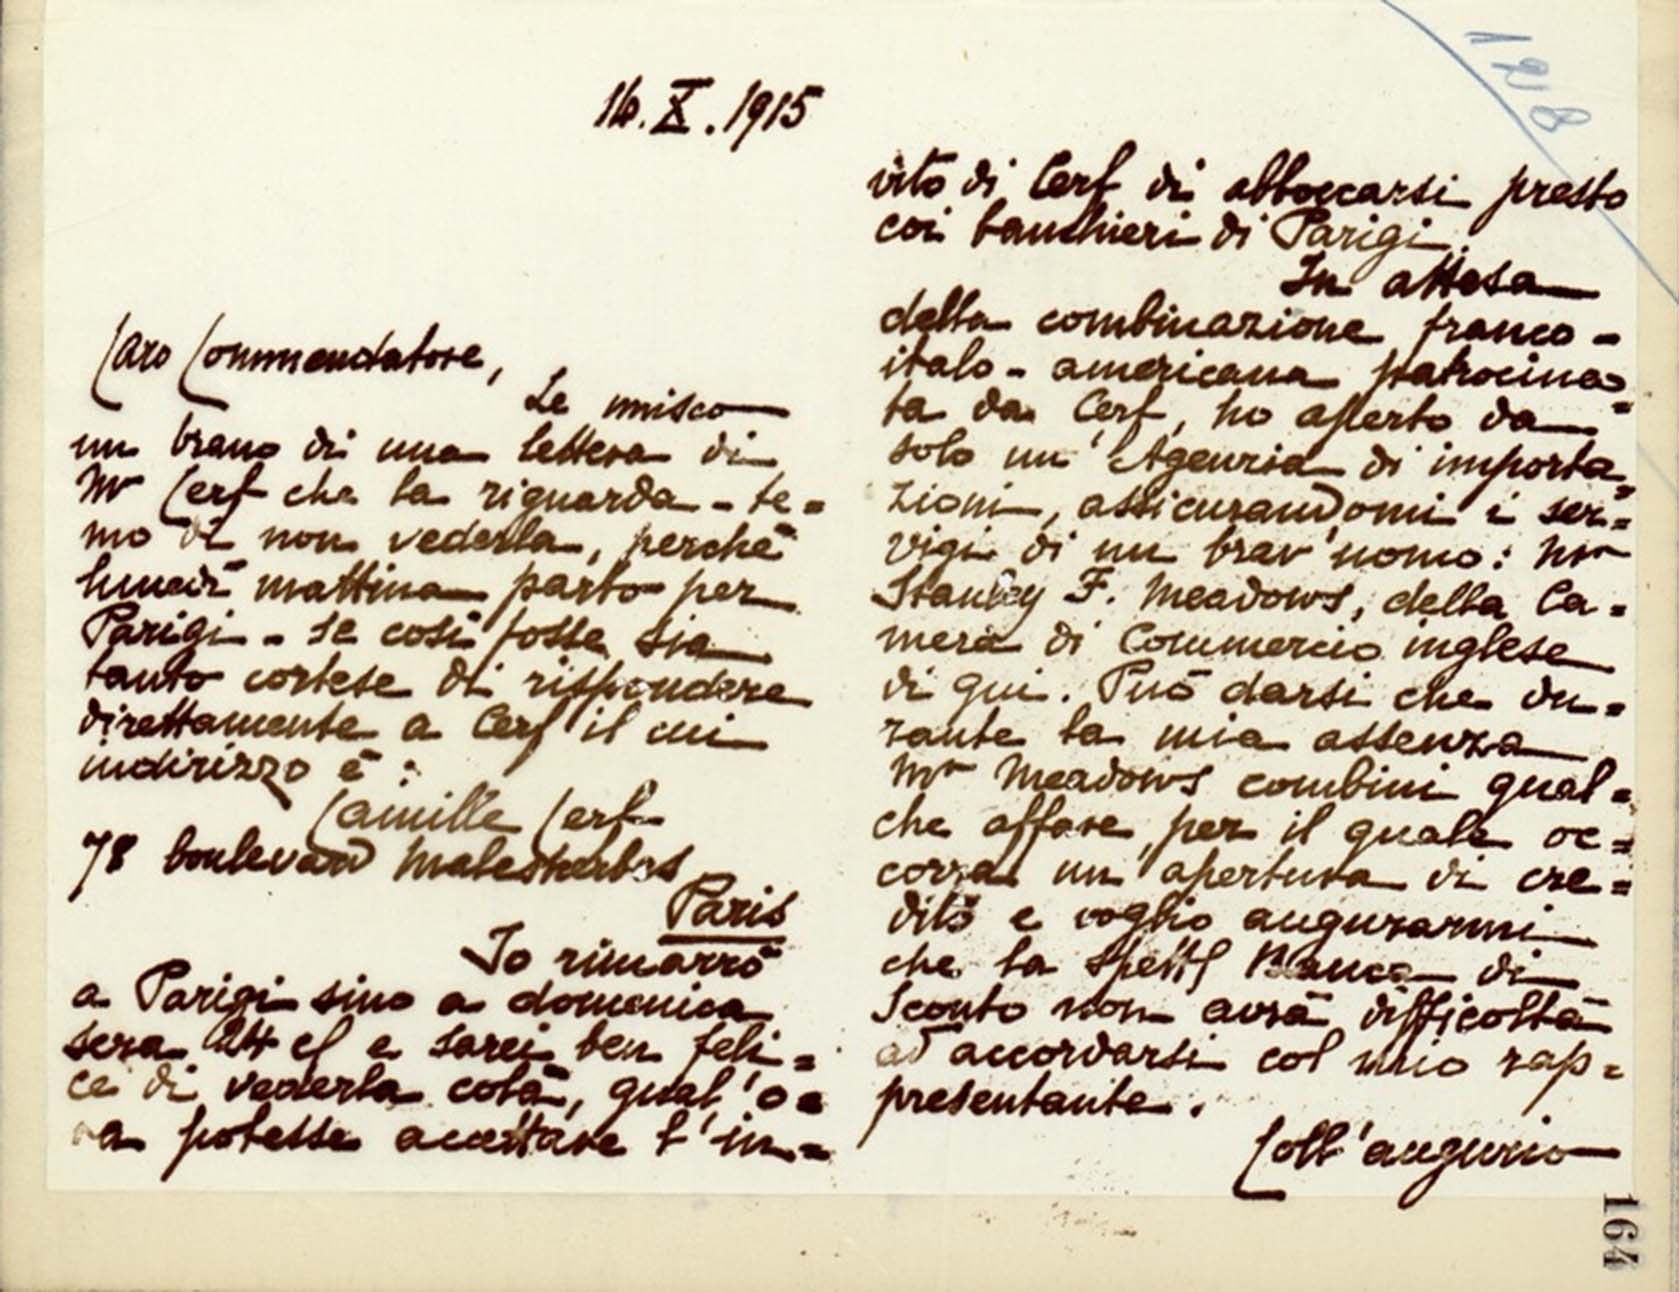 16.X.1915
Caro Commendatore,
Le unisco
un brano di una lettera di
Mr Cerf che la riguarda - te=
mo di non vederla, perchè
lunedì mattina parto per
Parigi - se così fosse sia
tanto cortese di rispondere
direttamente a Cerf il cui
indirizzo è :
Camille Cerf
78 boulevard Malesherbes
Paris
Io rimarrò
a Parigi sino a domenica
sera 24 e sarei ben feli=
ce di vederla colà, qual'o=
ra potesse accettare l'in=
vito di Cerf di abboccarsi presto
coi banchieri di Parigi.
In attesa
della combinazione franco-
italo-americana patrocina=
ta da Cerf, ho aperto da
solo un'Agenzia di importa=
zioni, assicurandomi i ser=
vigi di un brav'uomo: Mr
Stanley F. Meadows, della Ca=
mera di Commercio inglese
di qui. Può darsi che du=
rante la mia assenza
Mr Meadows combini qual=
che affare, per il quale oc=
corra un'apertura di cre=
dito e voglio augurarmi
che la Spett Banca di
Sconto non avrà difficoltà
ad accordarsi col mio rap=
presentante.
Coll'augurio
128
164